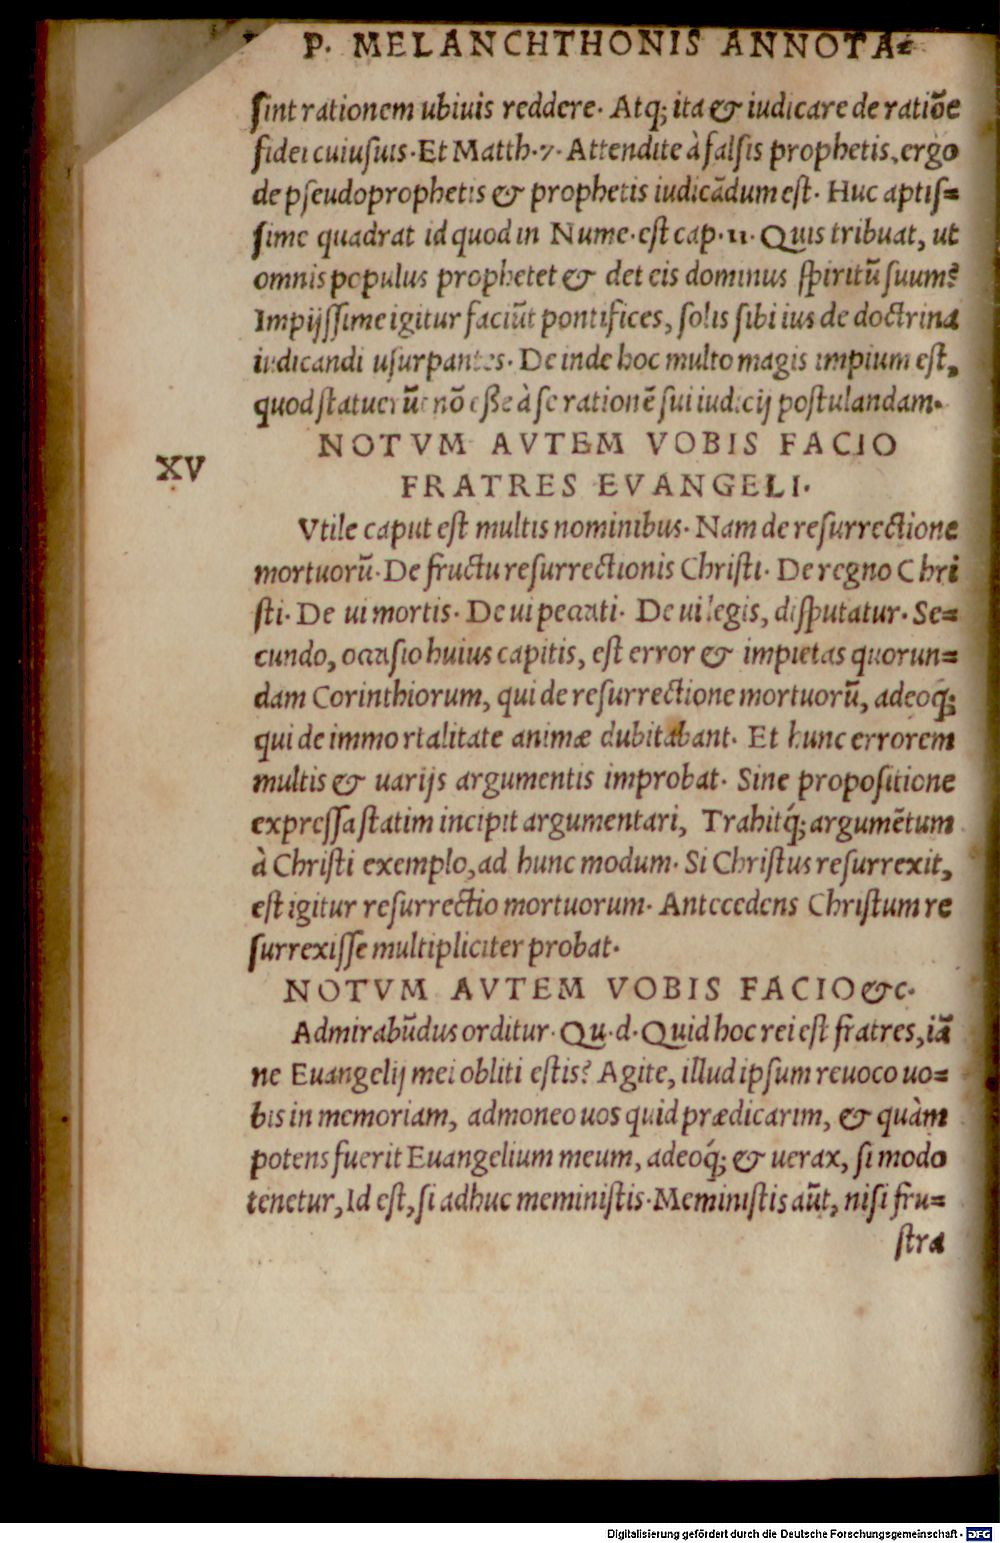 P. MELANCHTHONIS ANNOTA⸗
ſint rationem ubiuis reddere. Atq; ita & iudicare de ratiōe
fidei cuiuſuis. Et Matth. 7. Attendite à falſis prophetis, ergo
de pſeudoprophetis & prophetis iudicādum eſt. Huc aptiſ⸗
ſime quadrat id quod in Nume. eſt cap. 11. Quis tribuat, ut
omnis populus prophetet & det eis dominus ſpiritū ſuum?
Impijſſime igitur faciūt pontifices, ſolis ſibi ius de doctrina
iudicandi uſurpantes. De inde hoc multo magis impium eſt,
quod ſtatuerūt nō eſſe à ſe rationē ſui iudicij poſtulandam.
NOTVM AVTEM VOBIS FACIO
XV
FRATRES EVANGELI.
Vtile caput eſt multis nominibus. Nam de reſurrectione
mortuorū. De fructu reſurrectionis Chriſti. De regno Chri
ſti. De ui mortis. De ui peccati. De ui legis, diſputatur. Se⸗
cundo, occaſio huius capitis, eſt error & impietas quorun⸗
dam Corinthiorum, qui de reſurrectione mortuorū, adeoq;
qui de immortalitate animæ dubitabant. Et hunc errorem
multis & uarijs argumentis improbat. Sine propoſitione
expreſſa ſtatim incipit argumentari, Trahitq́; argumētum
à Chriſti exemplo, ad hunc modum. Si Chriſtus reſurrexit,
eſt igitur reſurrectio mortuorum. Antecedens Chriſtum re
ſurrexiſſe multipliciter probat.
NOTVM AVTEM VOBIS FACIO &c.
Admirabūdus orditur. Qu. d. Quid hoc rei eſt fratres, iā
ne Euangelij mei obliti eſtis? Agite, illud ipſum reuoco uo⸗
bis in memoriam, admoneo uos quid prædicarim, & quàm
potens fuerit Euangelium meum, adeoq́; & uerax, ſi modo
tenetur, Id eſt, ſi adhuc meminiſtis. Meminiſtis aūt, niſi fru⸗
ſtra
Digitalisierung gefördert durch die Deutsche Forschungsgemeinschaft - DFG